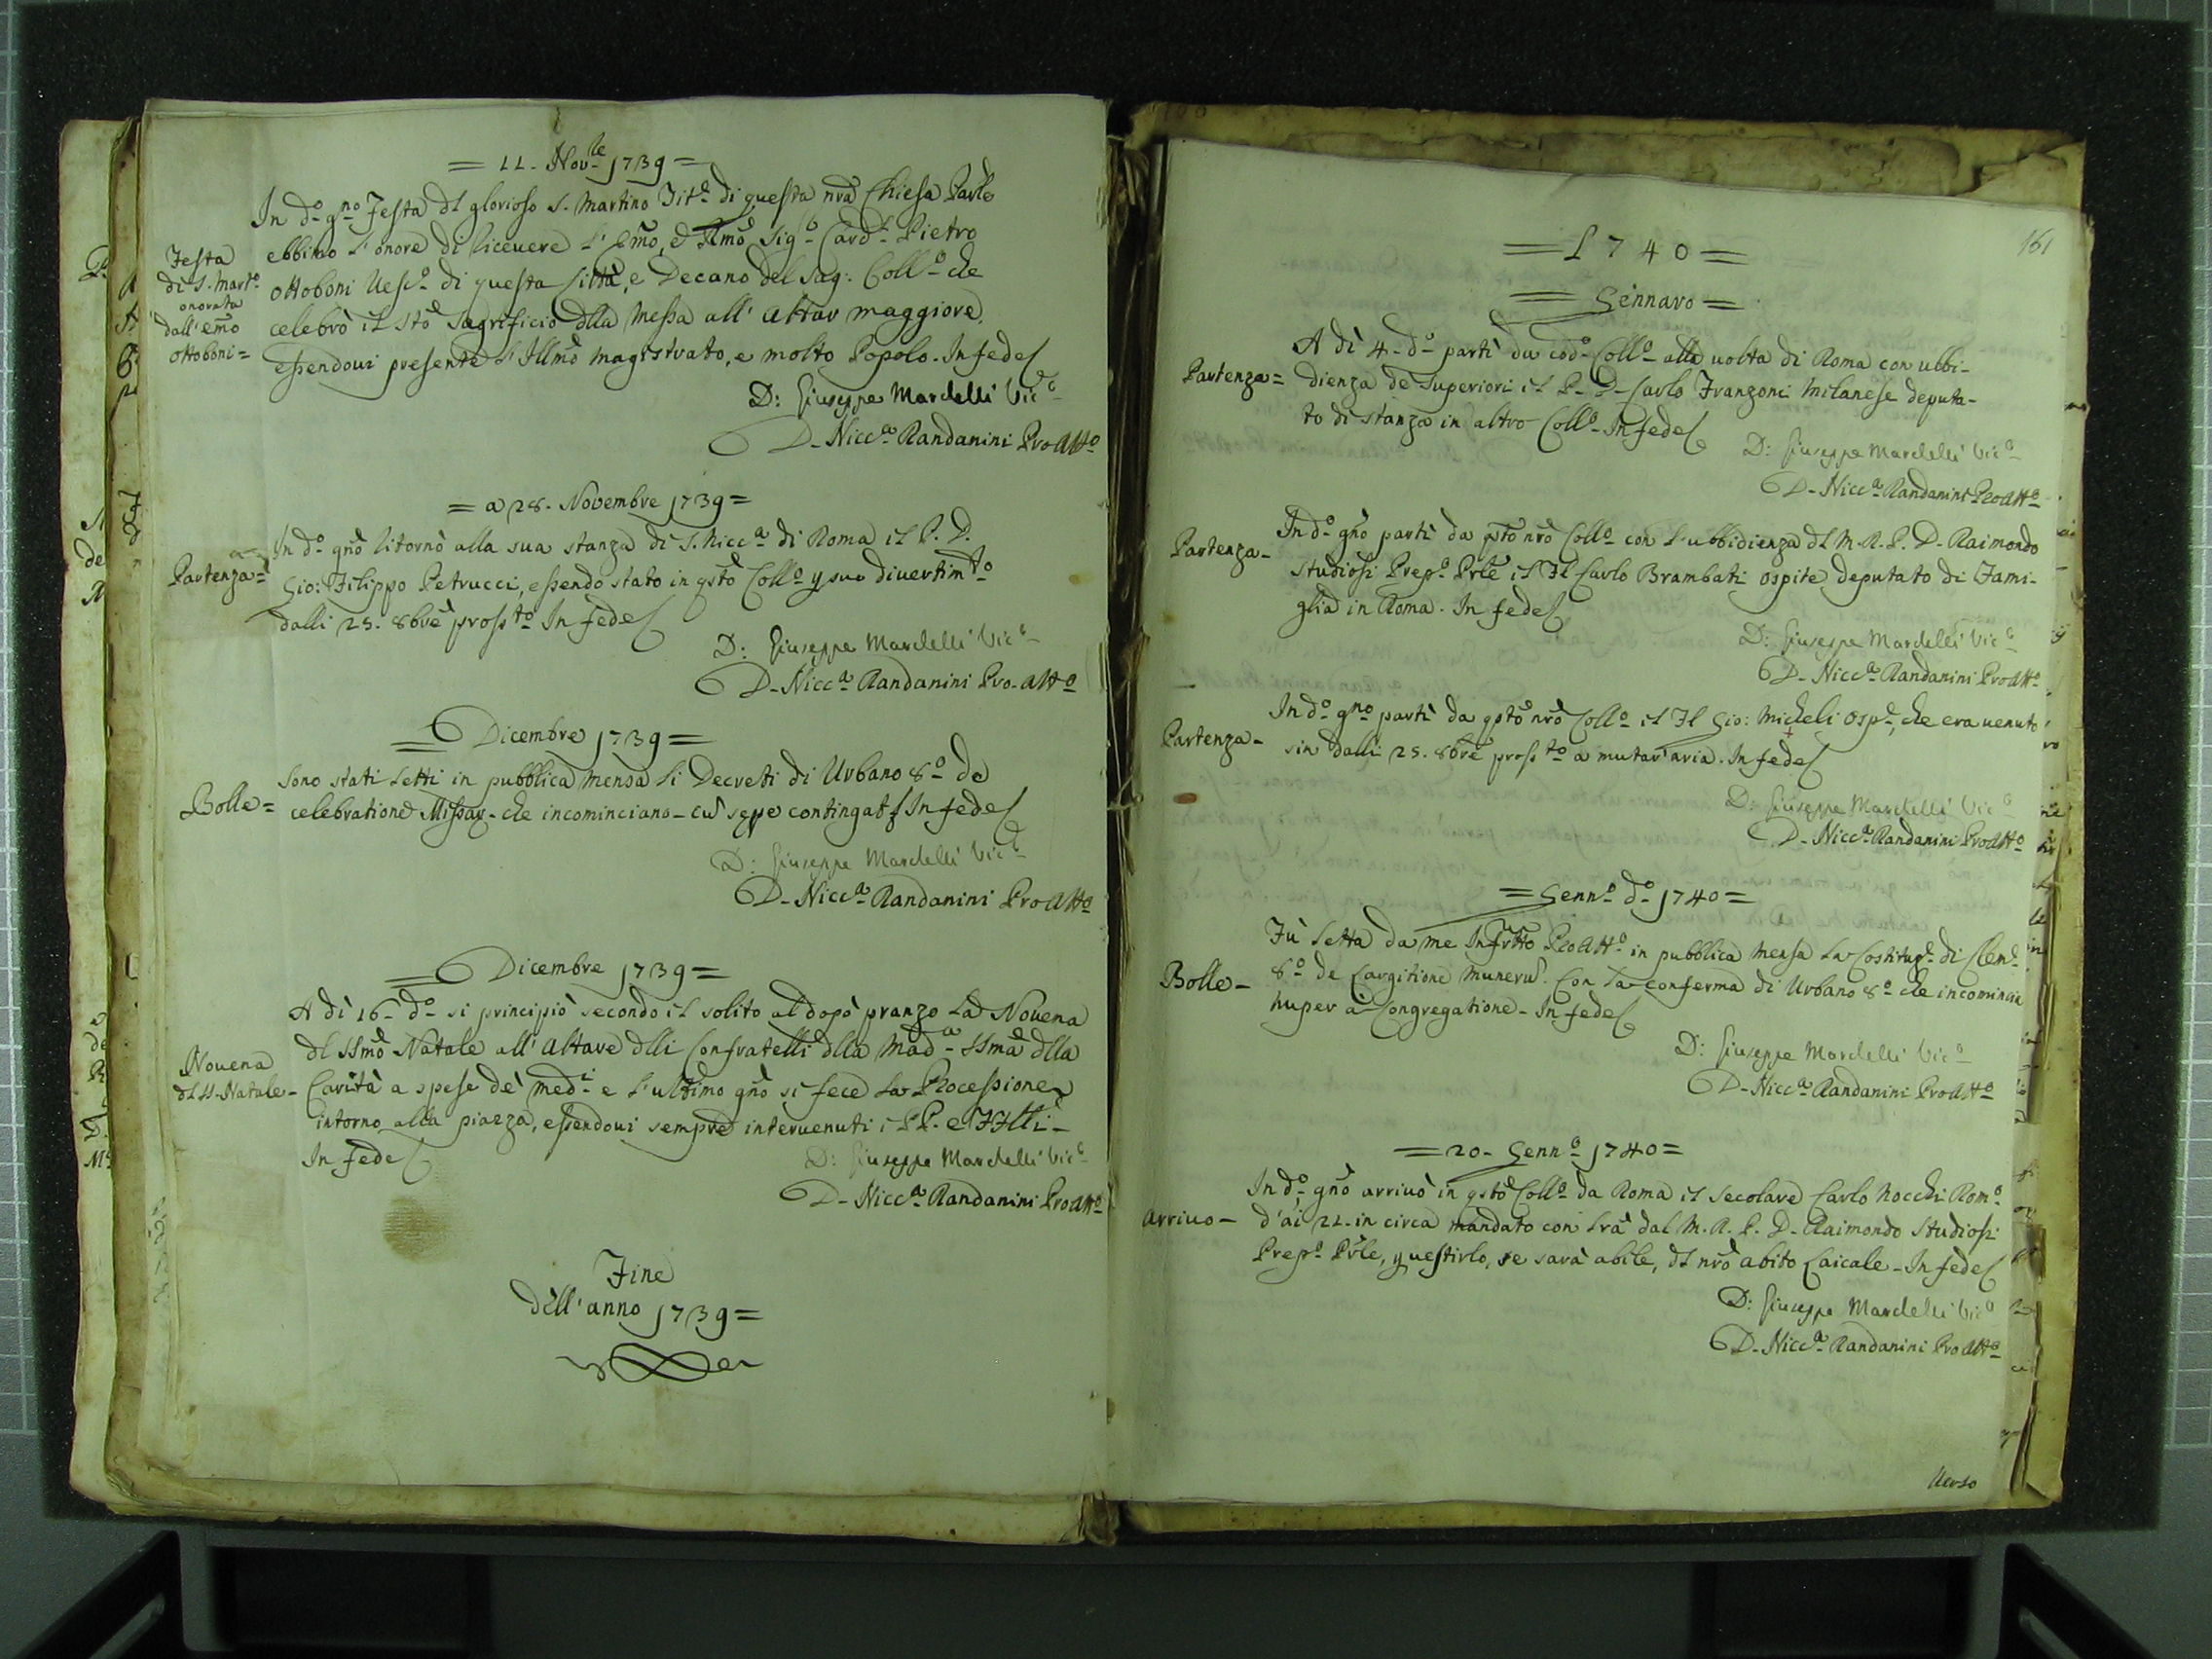 = 11. Nov.re 1739 =
In d.o gno Festa dl glorioso S. Martino Tit.e di questa nrã Chiesa Parle
Festa
di S. Mart.o
onorata
dall' emo
Ottoboni =
ebbimo l'onore di riceuere l'Emo, e Rmo Sig.r Card.l Pietro
Ottoboni Uesc.o di questa Città, e Decano del Sag: Coll.o che
celebrò il Sto Sagrificio dlla Messa all' Altar maggiore,
essendoui presente l'Illmo Magistrato, e molto Popolo. In fede
D: Giuseppe Mardelli Vic.o
D. Nicc.a Randanini ProAtt.o
= a 28. Novembre 1739 =
In d.o gno ritornò alla sua stanza di S. Nicc.a di Roma il P. D.
Partenza =
Gio: Filippo Petrucci, essendo stato in qsto Coll.o p suo divertim.to
dalli 25. 8bre pross.to In fede
D: Giuseppe Mardelli Vic.o
D. Nicc.a Randanini Pro. Att.o
= Dicembre 1739 =
Sono stati letti in pubblica mensa li Decreti di Urbano 8.o de
Bolle =
celebratione Missar. che incominciano - cũ sepe contingat In fede
D: Giuseppe Mardelli Vic.o
D. Nicc.a Randanini ProAtt.o
= Dicembre 1739 =
A dì 16. d.o si principiò secondo il solito al dopò pranzo la Novena
Nouena
dl SS. Natale -
dl SSmo Natale all' Altare dlli Confratelli dlla Mad.a SSma dlla
Carità a spese de' med.i e l'ultimo gno si fece la Processione
intorno alla piazza, essendoui sempre interuenuti i PP. e FFlli -
In fede
D: Giuseppe Mardelli Vic.o
D. Nicc.a Randanini ProAtt.o
Fine
dell' anno 1739 =
161
= 1740 =
= Gennaro =
A dì 4. d.o partì da cod.o Coll.o alla uolta di Roma con ubbi-
Partenza =
dienza de Superiori il P. D. Carlo Franzoni Milanese deputa-
to di stanza in altro Coll.o In fede
D: Giuseppe Mardelli Vic.o
D. Nicc.a Randanini ProAtt.o
In d.o gno partì da qsto nrõ Coll.o con l'ubbidienza dl M.R.P. D. Raimondo
Partenza -
Studiosi Prep.o Prle il Fl Carlo Brambati ospite deputato di Fami-
glia in Roma. In fede
D: Giuseppe Mardelli Vic.o
D. Nicc.a Randanini ProAtt.o
In d.o gno partì da qsto nrõ Coll.o il Fl Gio: Micheli Osp.e, che era uenuto
Partenza -
sin dalli 25. 8bre pross.to a mutar' aria. In fede
D: Giuseppe Mardelli Vic.o
D. Nicc.a Randanini ProAtt.o
= Genn.o d.o 1740 =
Fù letta da me Infrtto ProAtt.o in pubblica mensa la Costituz.e di Clem.e
Bolle -
8.o de Largitione munerũ. Con la conferma di Urbano 8.o che incomincia
nuper à Congregatione - In fede
D: Giuseppe Mardelli Vic.o
D. Nicc.a Randanini ProAtt.o
= 20. Genn.o 1740 =
In d.o gno arriuò in qsto Coll.o da Roma il secolare Carlo Nocchi Rom.o
Arriuo -
d'ai 21. in circa mandato con lrã dal M.R.P. D. Raimondo Studiosi
Prep.o Prle, p uestirlo, se sarà abile, dl nrõ abito Laicale - In fede
D: Giuseppe Mardelli Vic.o
D. Nicc.a Randanini ProAtt.o
Uerso